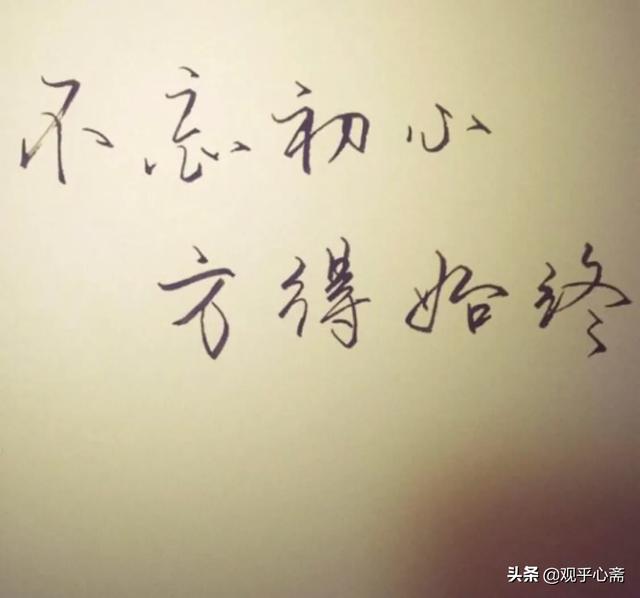 不忘初心
方得始终
头条 @观乎心斋